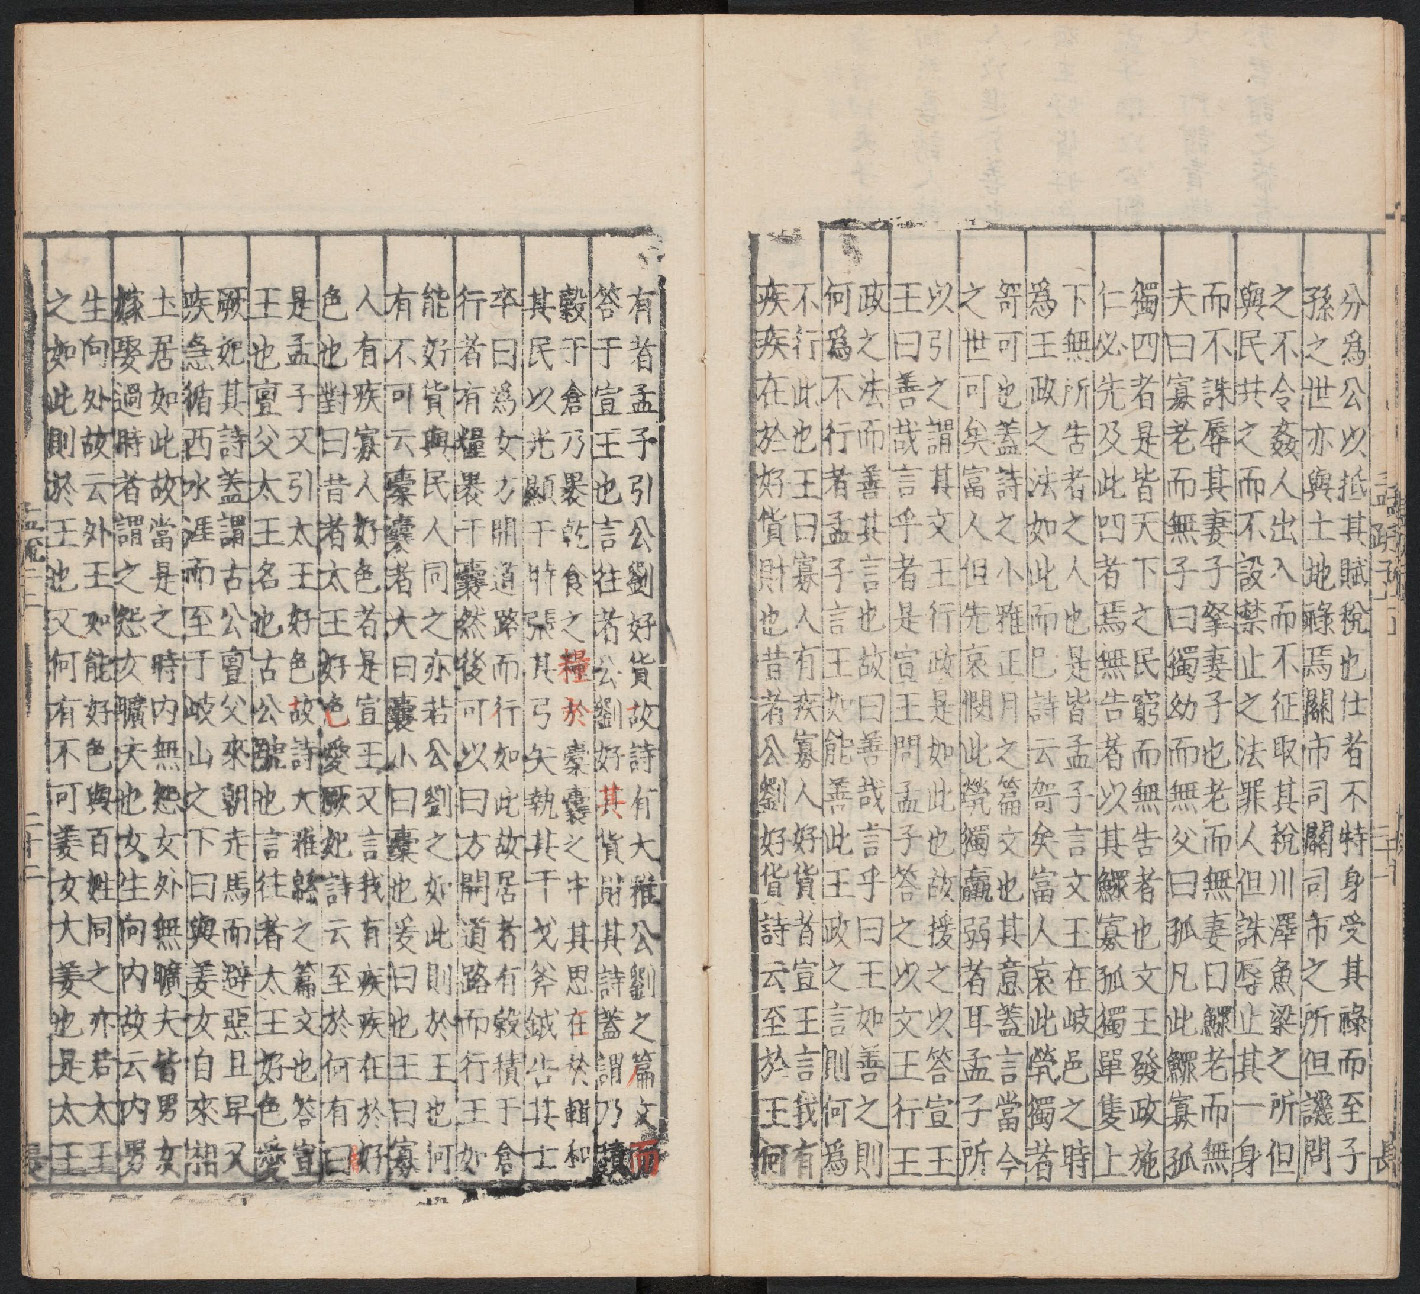 分爲公以抵其賦稅也仕者不特身受其祿而至子
孫之世亦與土地祿焉關市司關司市之所但譏問
之不令姦人出入而不征取其稅川澤魚梁之所但
與民共之而不設禁止之法罪人但誅辱止其一身
而不誅辱其妻子孥妻子也老而無妻曰鰥老而無
夫曰寡老而無子曰獨幼而無父曰孤凡此鰥寡孤
獨四者是皆天下之民窮而無告者也文王發政施
仁必先及此四者焉無告者以其鰥寡孤獨單隻上
下無所告者之人也是皆孟子言文王在岐邑之時
爲王政之法如此而已詩云哿矣富人哀此煢獨者
哿可也蓋詩之小雅正月之篇文也其意蓋言當今
之世可矣富人但先哀憫此煢獨羸弱者耳孟子所
以引之謂其文王行政是如此也故援之以答宣王
王曰善哉言乎者是宣王問孟子答之以文王行王
政之法而善其言也故曰善哉言乎曰王如善之則
何爲不行者孟子言王如能善此王政之言則何爲
不行此也王曰寡人有疾寡人好貨者宣王言我有
疾疾在於好貨財也昔者公劉好貨詩云至於王何
有者孟子引公劉好貨故詩有大雅公劉之篇文而
答于宣王也言往者公劉好其貨財其詩蓋謂乃積
穀于倉乃裹乾食之糧於橐囊之中其思在於輯和
其民以光顯于時張其弓矢執其干戈斧鉞告其士
卒曰爲女方開道路而行如此故居者有穀積于倉
行者有糧裹于囊然後可以曰方開道路而行王如
能好貨與民人同之亦若公劉之如此則於王也何
有不可云橐囊者大曰囊小曰橐也爰曰也王曰寡
人有疾寡人好色者是宣王又言我有疾疾在於好
色也對曰昔者太王好色愛厥妃詩云至於何有曰
是孟子又引太王好色故詩大雅緜之篇文也答宣
王也亶父太王名也古公號也言往者太王好色愛
厥妃其詩蓋謂古公亶父來朝走馬而避惡且早又
疾急循西水涯而至于岐山之下曰與姜女自來相
土居如此故當是之時内無怨女外無曠夫皆男女
嫁娶過時者謂之怨女曠夫也女生向内故云内男
生向外故云外王如能好色與百姓同之亦若太王
之如此則於王也又何有不可姜女大姜也是太王
孟疏二上
二十二
長